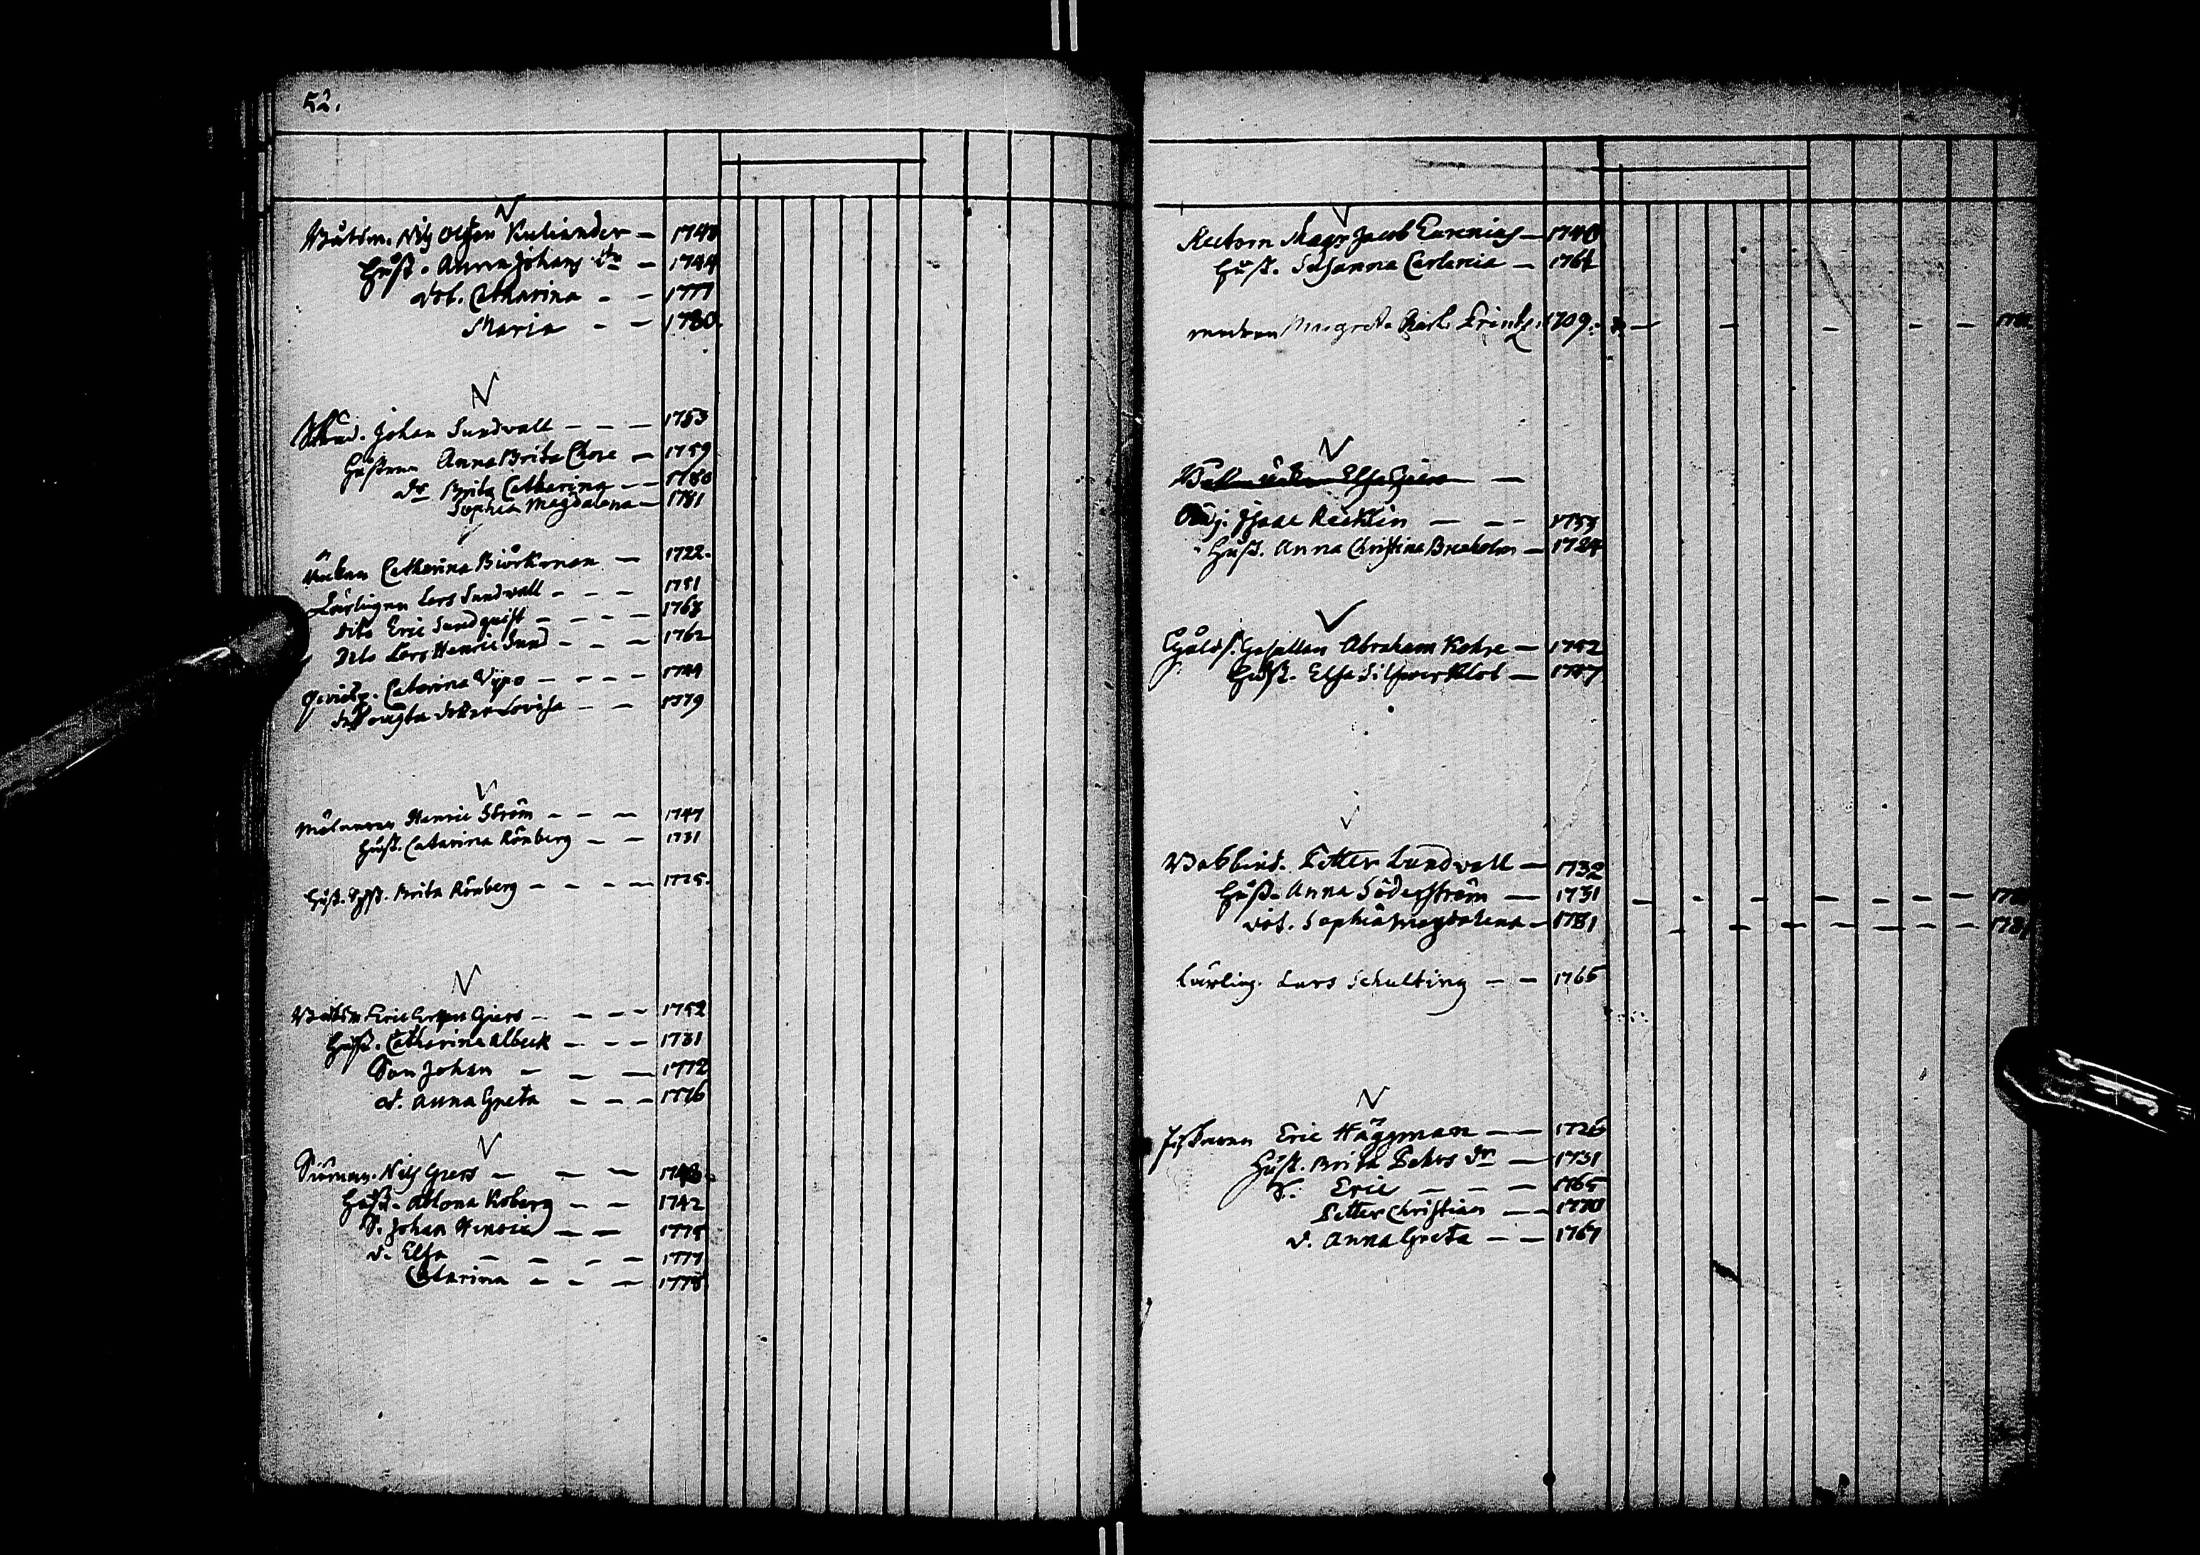 52.
Båtsm. Nils Olsson Kuliander — 1740
Hust. Anna Johans dr — 1744
dot. Catharina — 1777
Maria — 1780.
Johan Sundwall — 1753
Hustrun Anna Brita Chore — 1759
dr Brita Catharina — 1780
Sophia Magdalena — 1781
Änkan Catharina Biörkman — 1722.
Lärlingen Lars Sundwall — 1751
dito Eric Sundquist — 1763
Dito Lars Henric Sund — 1762
Catarina — 1744
Lovisa — 1779
Mölnaren Henric Ström — 1747
Hust. Catarina Rönberg — 1731
Brita Rönberg — 1725.
Båtsm. Eric Giers — 1752
Hust. Catharina Albeck — 1731
Son Johan — 1772
d. Anna Greta — 1776
Nils Giers — 1743
Hust. Koberg — 1742
S. Johan Henric — 1775
d. Elsa — 1777
Catarina — 1778
Rectorn Mag. Jacob Eurenius — 1740
Hust. Susanna Carlenia — 1761
Margreta Printz. 1709.
Elsa Giers —
Isaac Recklin — 1755
Hust. Anna Christina Broholm — 1724
Guldsm. Gesällen Abraham Kohre — 1752
Hust. Elsa Silfwerklot — 1747
Bokbind. Petter Lundwall — 1732
Hust. Anna Söderström — 1731
dot. Sophia Magdalena — 1781 — 1781
Lärling. Lars Schulting — 1765
Fiskaren Eric Häggman — 1726
Hust. Brita Pehrs dr — 1731
S. Eric — 1765
Petter Christian — 1770
d. Anna Greta — 1767